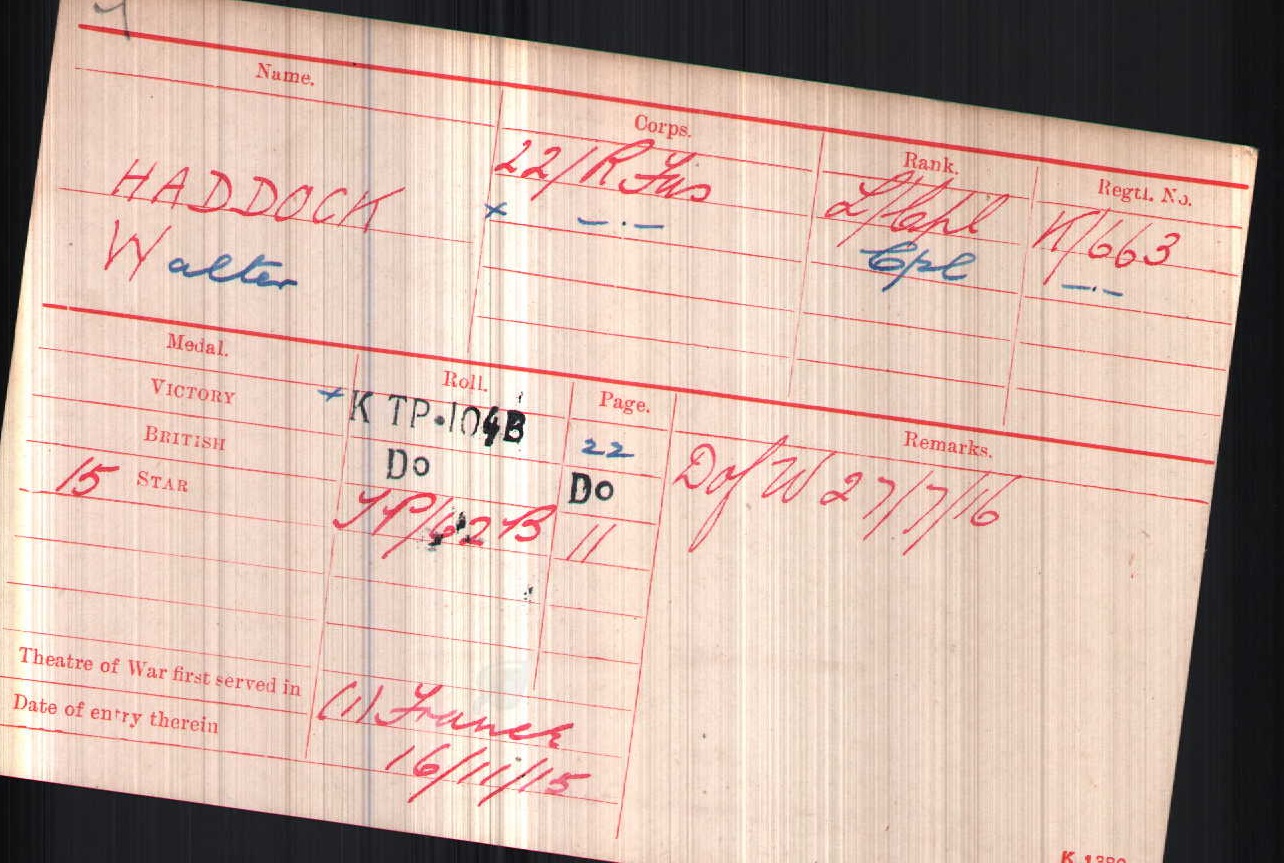 Name. Corps. Rank. Regtl. No.
HADDOCK 22/R Fus L/Cpl K/663
Walter x —·— Cpl —·—
Medal. Roll. Page. Remarks.
VICTORY + K TP·104B 22 D of W 27/7/16
BRITISH Do Do
15 STAR TP/62B 11
Theatre of War first served in (1) France
Date of entry therein 16/11/15
K 1380